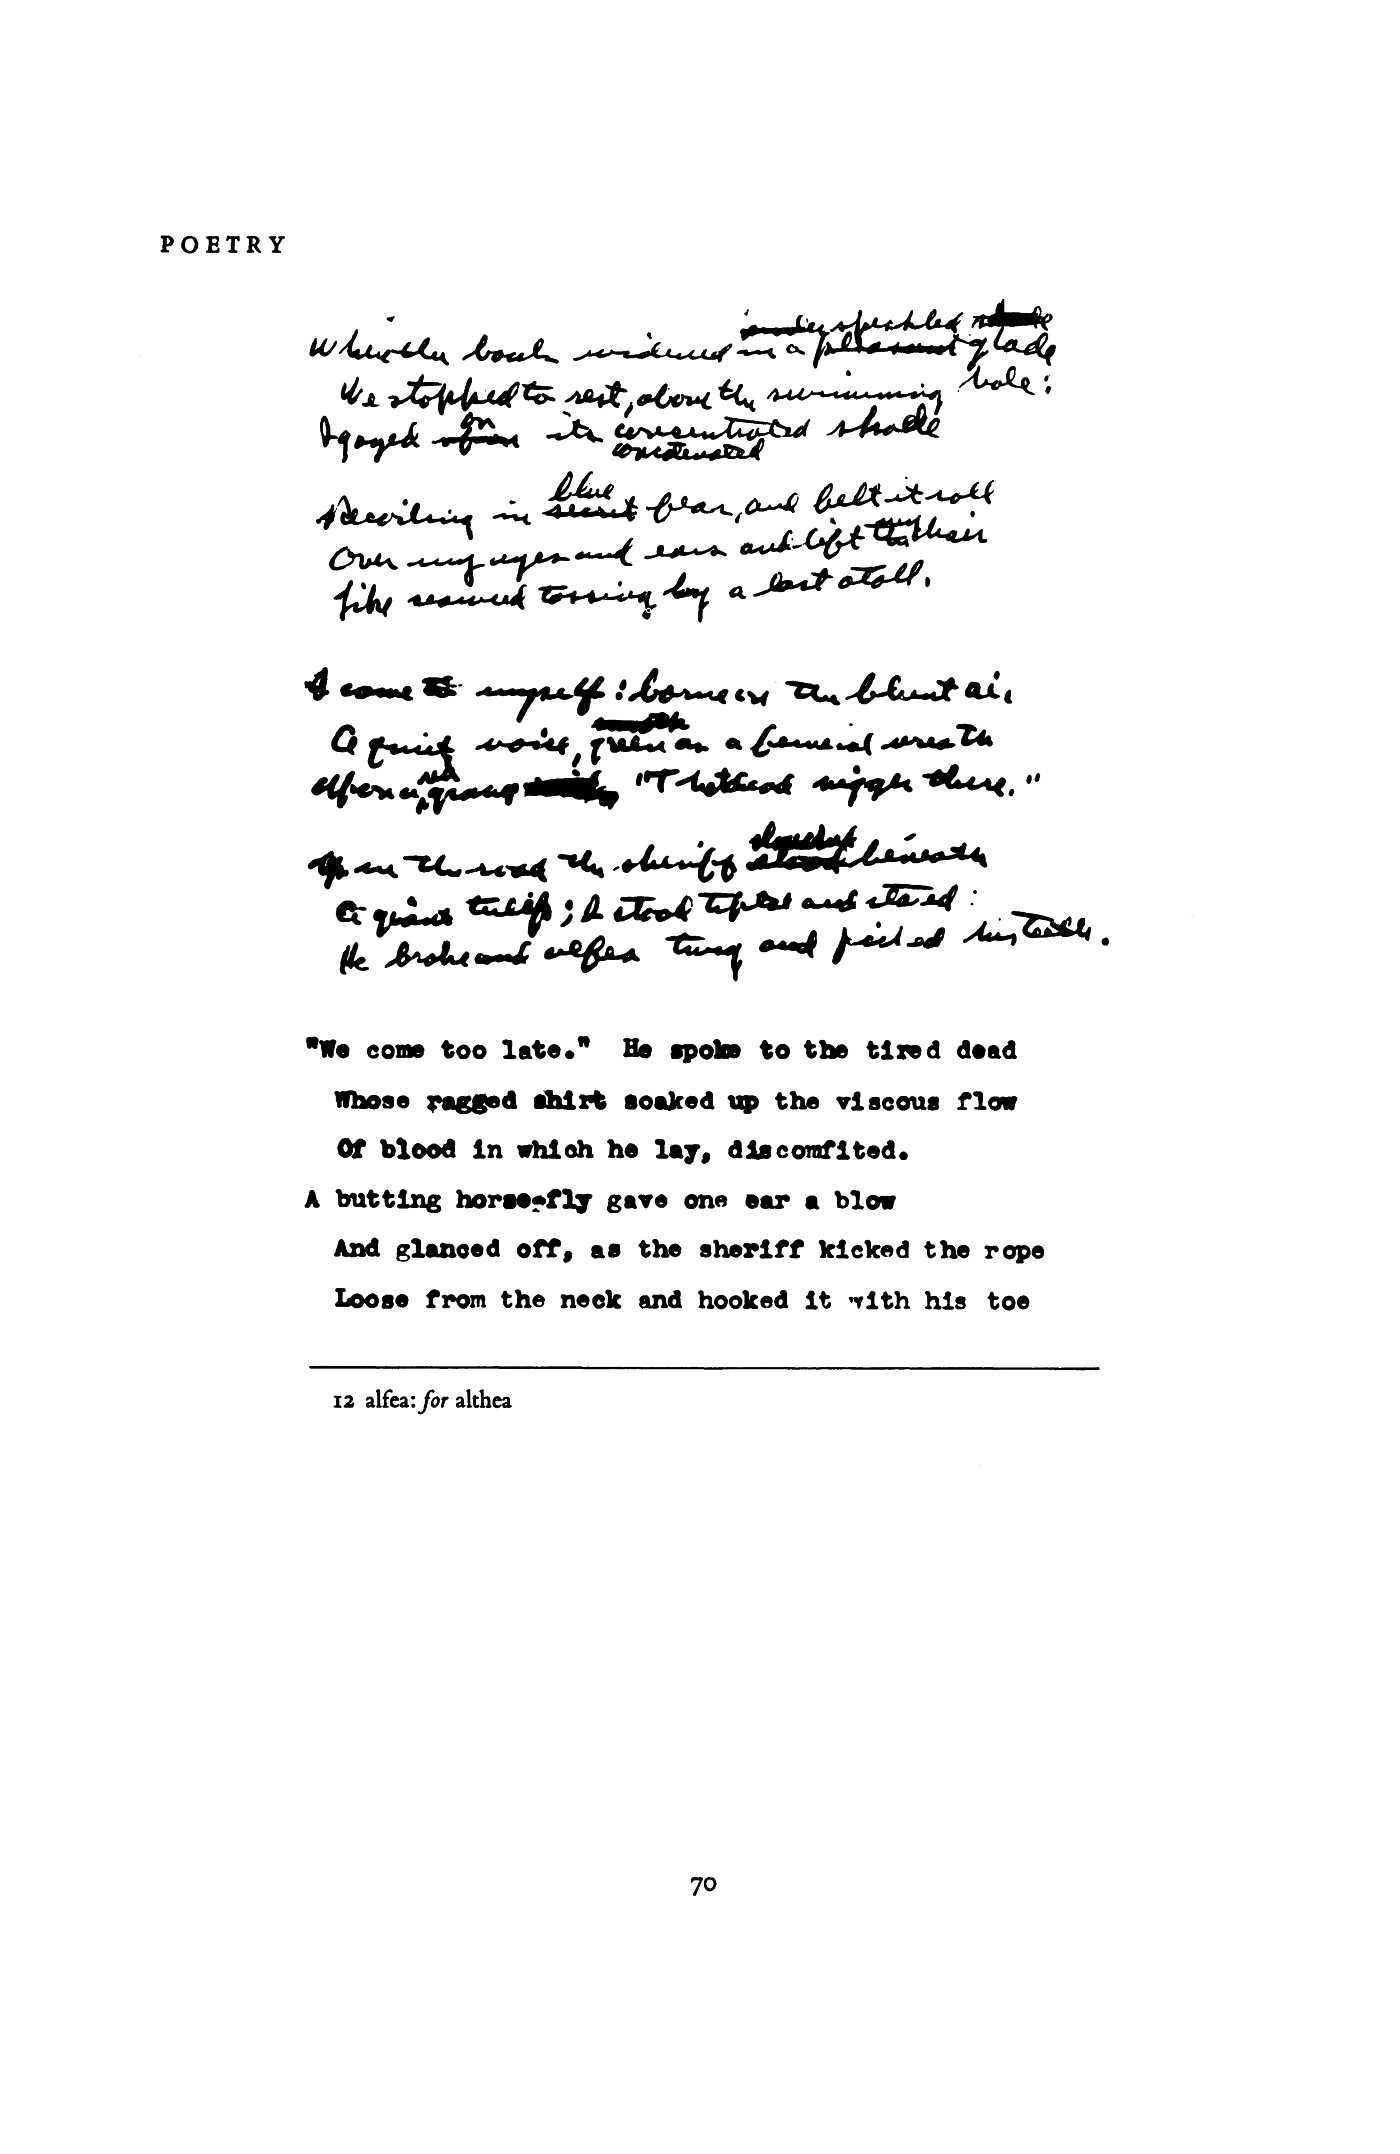 POETRY
speckled
Where the bank widened in a pleasant glade
We stopped to rest, above the swimming hole:
on
I gazed upon its concentrated shade
concatenated
blue
Recoiling in secret fear, and felt it roll
Over my eyes and ears and lift my hair
Like seaweed tossing by a lost atoll.
I come to myself: borne on the blunt air
A quiet voice, green as a funeral wreath
red
Upon a grave "That dead nigger there."
slouched
Up on the road the sheriff stood beneath
A giant tulip; I stood tiptoe and stared:
He broke and alfea twig and picked his teeth.
"We come too late." He spoke to the tired dead
Whose ragged shirt soaked up the viscous flow
Of blood in which he lay, discomfited.
A butting horse-fly gave one ear a blow
And glanced off, as the sheriff kicked the rope
Loose from the neck and hooked it with his toe
12 alfea: for althea
70